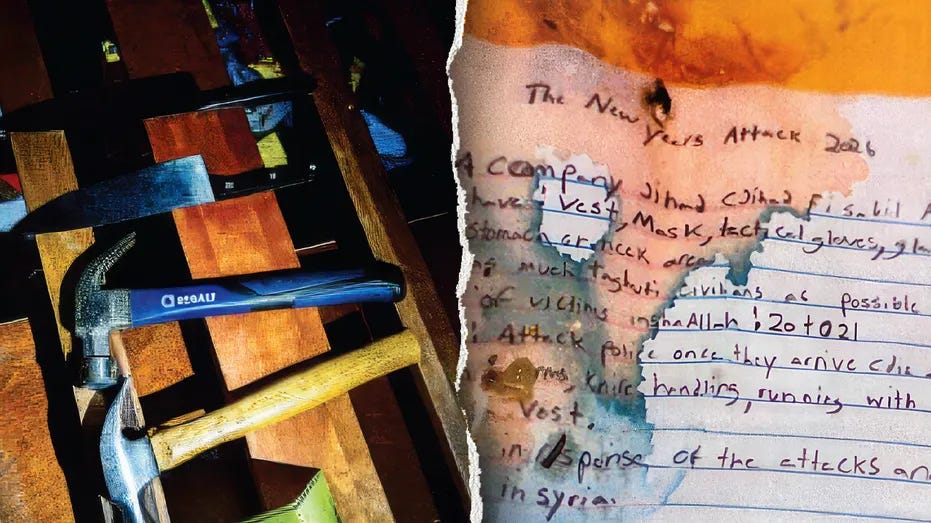 The New Years Attack 2026
A company Jihad (Jihad Fi sabil
have: Vest, Mask, tactical gloves,
stomach or neck area
much Taghuti civilians as possible
of victims inshaAllah: 20 to 21
Attack police once they arrive
knife handling, running with
Vest.
of the attacks
in Syria.